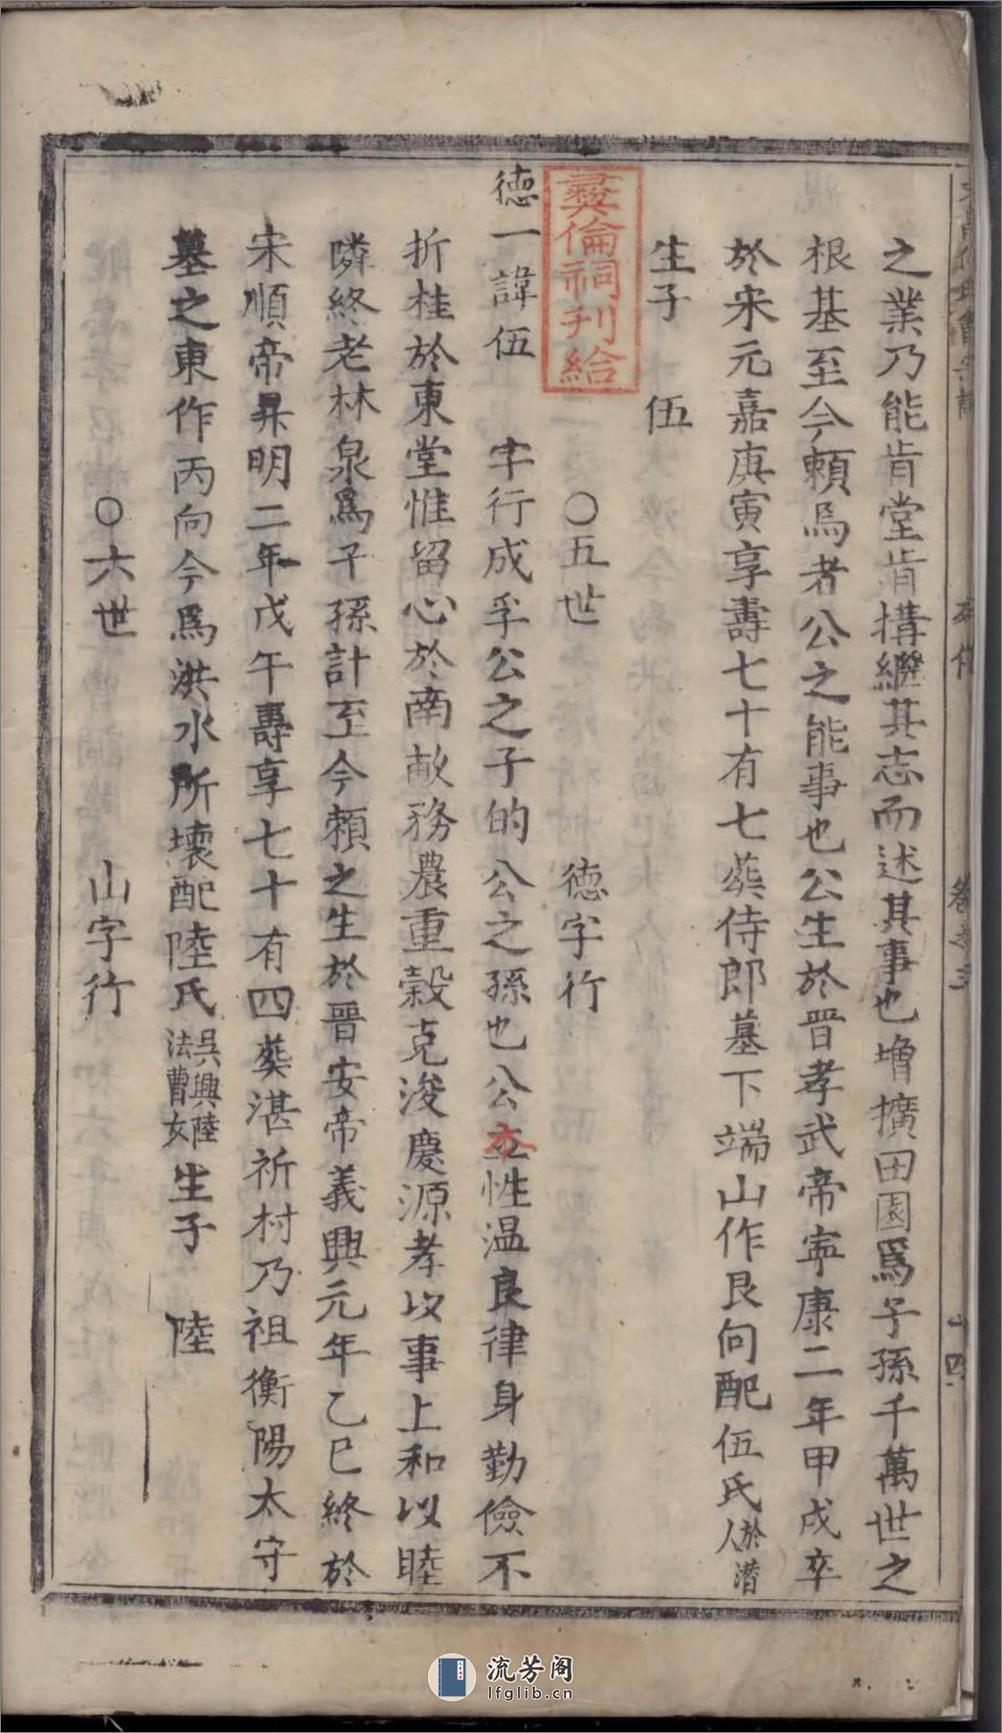 之業乃能肯堂肯搆繼其志而述其事也增擴田園爲子孫千萬世之
根基至今賴焉者公之能事也公生於晋孝武帝寧康二年甲戌卒
於宋元嘉庚寅享壽七十有七葬侍郎墓下端山作艮向配伍氏於潛人
生子　伍
彛倫祠刊給
○五世　德字行
德一諱伍　字行成孚公之子的公之孫也公立性温良律身勤儉不
折桂於東堂惟留心於南畝務農重穀克浚慶源孝以事上和以睦
隣終老林泉爲子孫計至今賴之生於晋安帝義興元年乙巳終於
宋順帝昇明二年戊午壽享七十有四葬湛祈村乃祖衡陽太守
墓之東作丙向今爲洪水所壞配陸氏吳興陸法曹女生子　陸
○六世　山字行
流芳阁
lfglib.cn